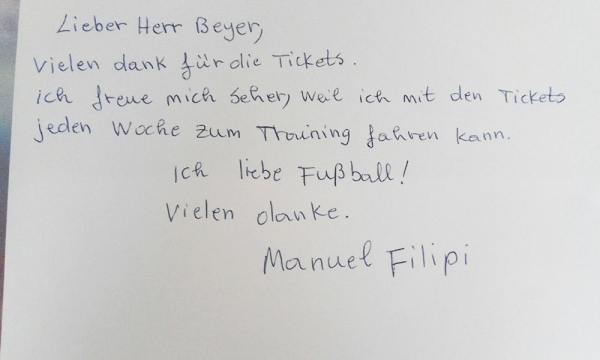 Lieber Herr Beyer,
Vielen dank für die Tickets.
ich freue mich seher, weil ich mit den Tickets
jeden Woche zum Training fahren kann.
Ich liebe Fußball!
Vielen danke.
Manuel Filipi